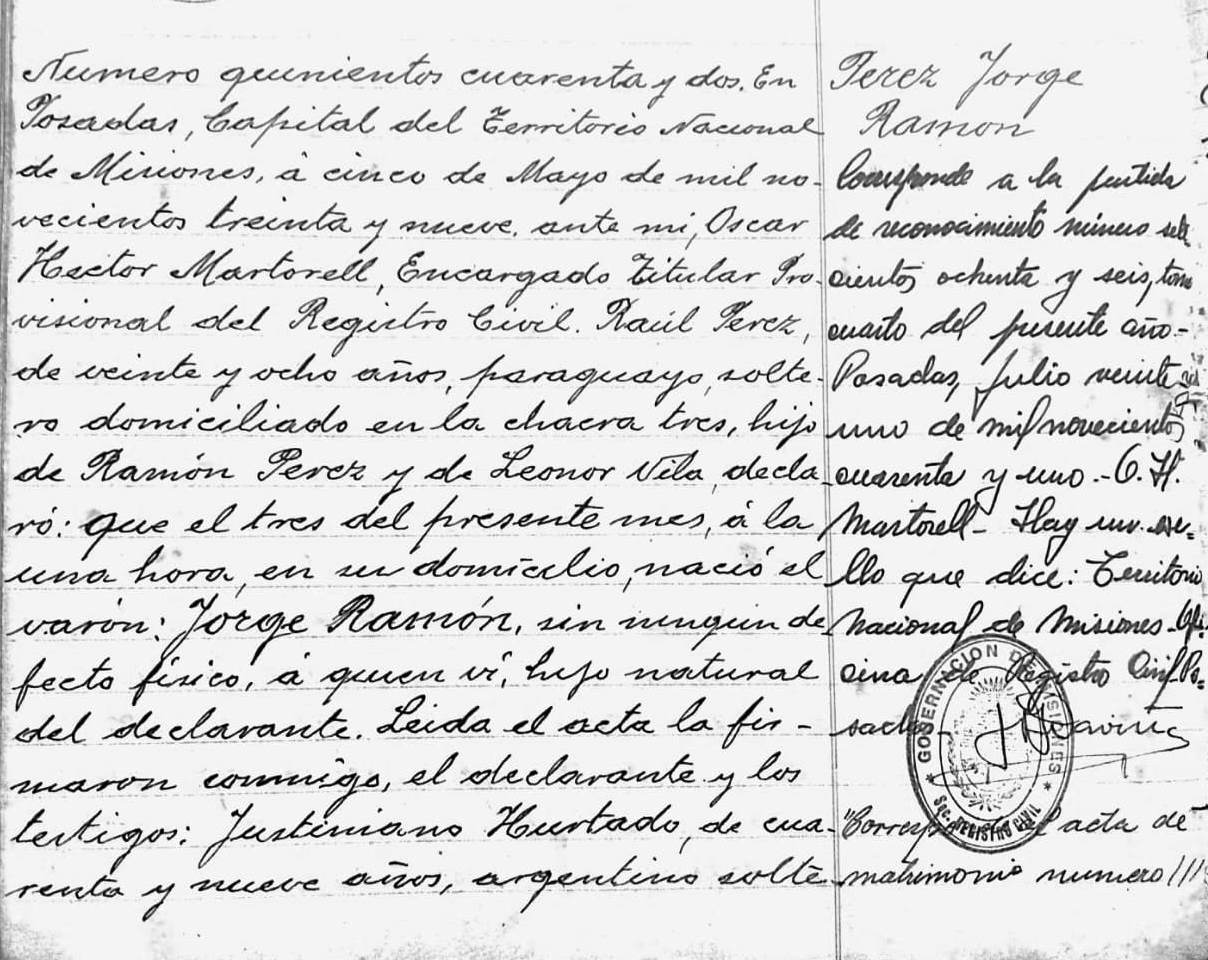 Numero quinientos cuarenta y dos. En
Posadas, Capital del Territorio Nacional
de Misiones, á cinco de Mayo de mil no-
vecientos treinta y nueve, ante mi, Oscar
Hector Martorell, Encargado Titular Pro-
visional del Registro Civil. Raúl Perez,
de veinte y ocho años, paraguayo, solte-
ro domiciliado en la chacra tres, hijo
de Ramón Perez y de Leonor Vila, decla-
ró: que el tres del presente mes, á la
una hora, en su domicilio, nació el
varón: Jorge Ramón, sin ningun de
fecto físico, á quien ví, hijo natural
del declarante. Leida el acta la fir-
maron conmigo, el declarante y los
testigos: Justiniano Hurtado, de cua-
renta y nueve años, argentino solte-
Perez Jorge
Ramon
Corresponde a la partida
de reconocimiento número sete
cientos ochenta y seis, tomo
cuarto del presente año-
Posadas, Julio veinte
uno de mil novecientos
cuarenta y uno.- O. H.
Martorell- Hay un se-
llo que dice: Territorio
Nacional de Misiones- Ofi-
cina de Registro Civil Po-
sadas
GOBERNACION DE MISIONES
Sec. REGISTRO CIVIL
acta de
matrimonio numero ///